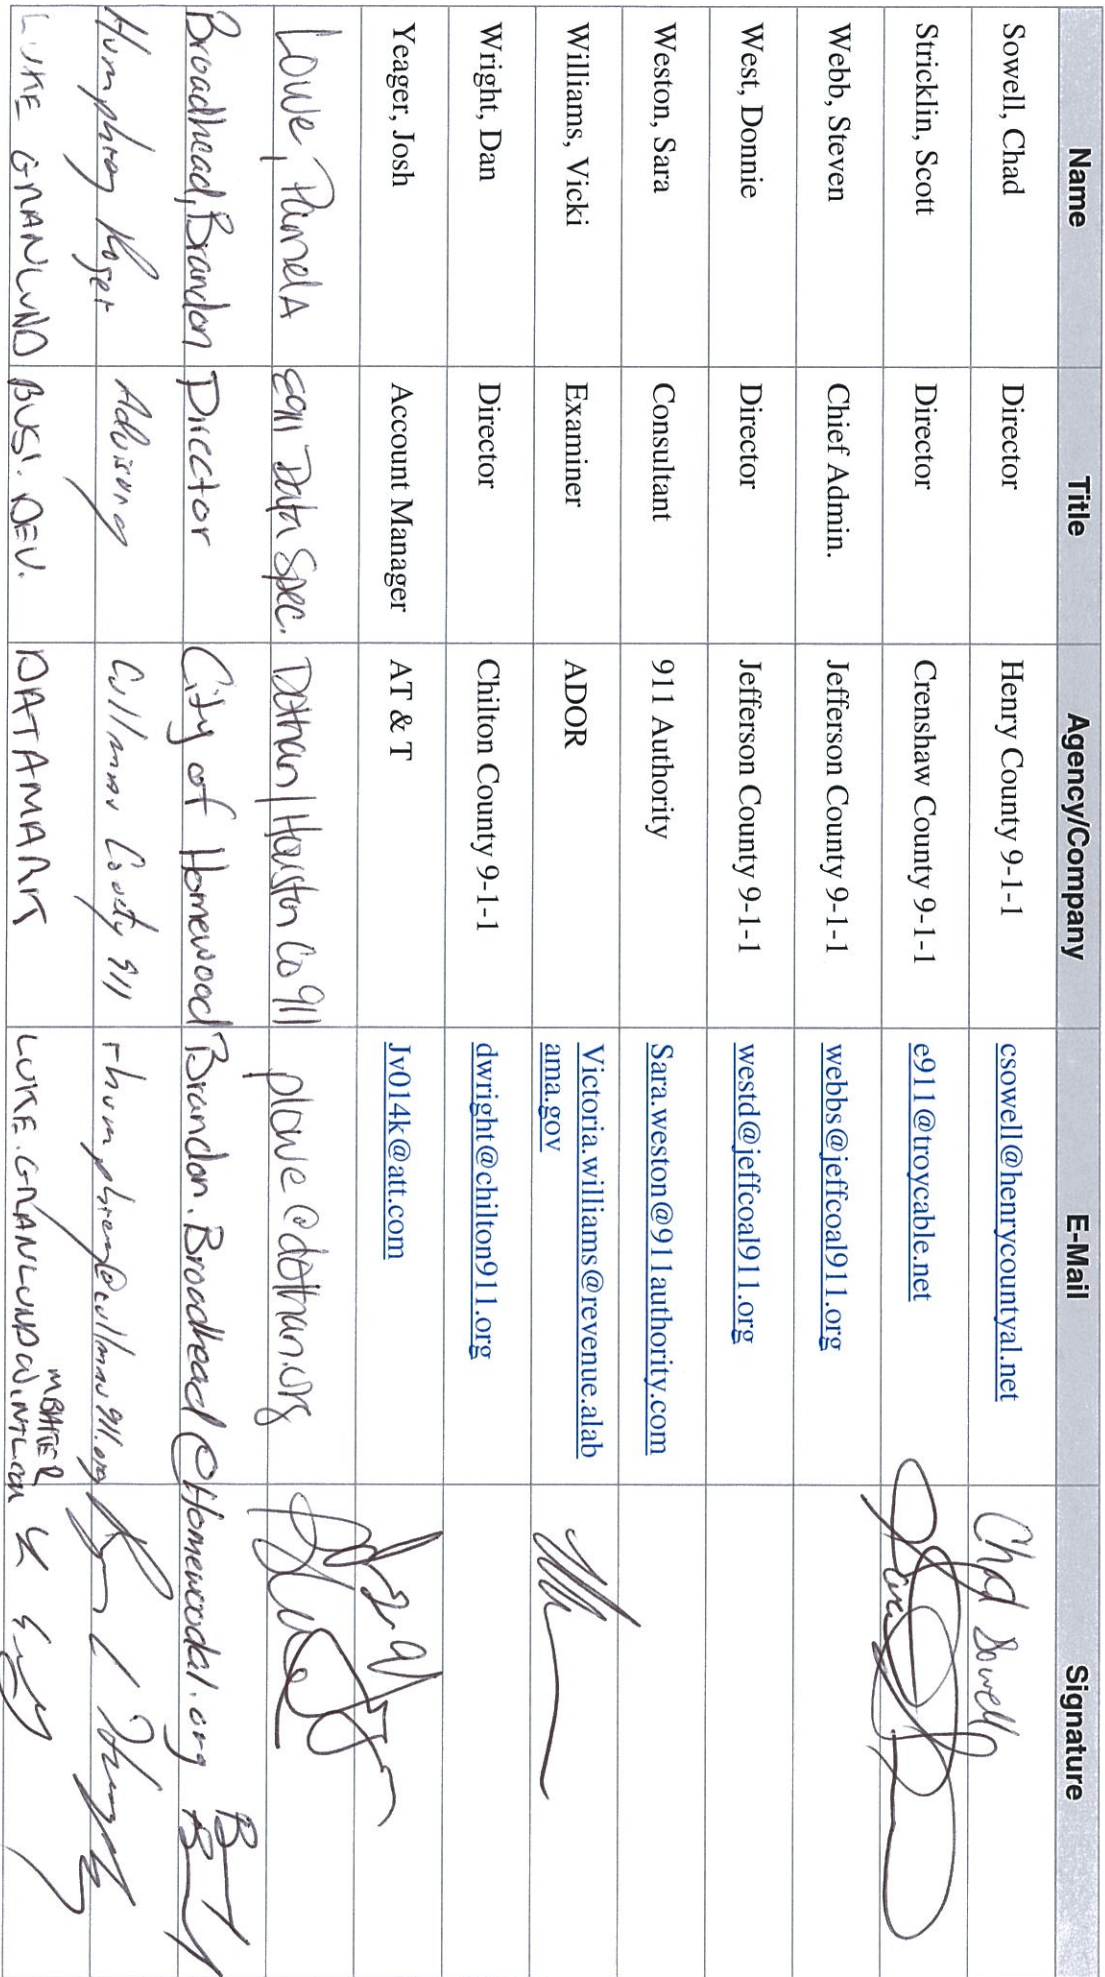 Name Title Agency/Company E-Mail Signature
Sowell, Chad Director Henry County 9-1-1 csowell@henrycountyal.net Chad Sowell
Stricklin, Scott Director Crenshaw County 9-1-1 e911@troycable.net
Webb, Steven Chief Admin. Jefferson County 9-1-1 webbs@jeffcoal911.org
West, Donnie Director Jefferson County 9-1-1 westd@jeffcoal911.org
Weston, Sara Consultant 911 Authority Sara.weston@911authority.com
Williams, Vicki Examiner ADOR Victoria.williams@revenue.alab
ama.gov
Wright, Dan Director Chilton County 9-1-1 dwright@chilton911.org
Yeager, Josh Account Manager AT & T Jv014k@att.com
Lowe, PamelA E911 Data Spec. Dothan/Houston Co 911 plowe@dothan.org
Broadhead, Brandon Director City of Homewood Brandon.Broadhead@Homewoodal.org
Humphrey Roger Advisory Cullman County 911 rhumphrey@cullman911.org
LUKE GRANLUND BUSI. DEV. DATAMARK